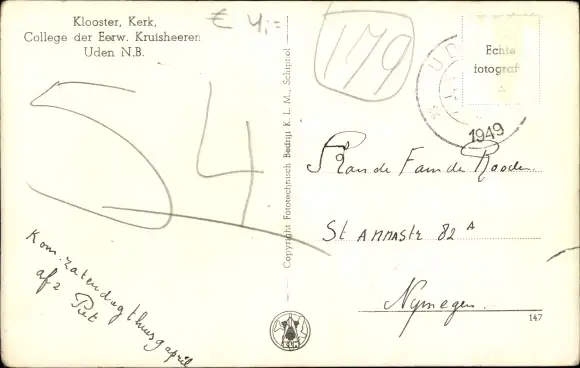 Klooster, Kerk,
College der Eerw. Kruisheeren
Uden N.B.
€ 4,=
179
54
Echte
fotograf
UD
1949
Copyright Fototechnisch Bedrijf K. L. M., Schiphol
Aan de Fam de Rooden
St Annastr 82 A
Nymegen.
Kom zaterdag thuis
af 2 april
Piet
147